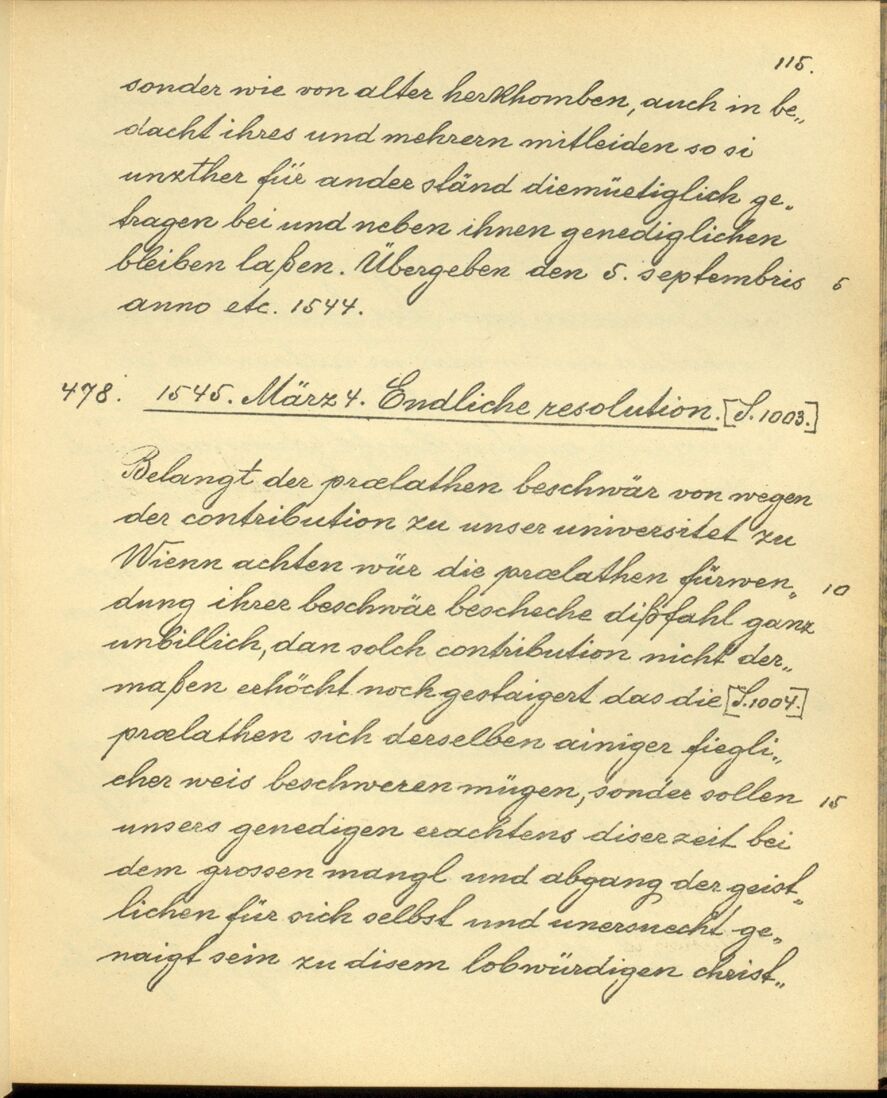 115.
sonder wie von alter herkhomben, auch in be„
dacht ihres und mehrern mitleiden so si
unzther für ander ständ diemüetiglich ge„
tragen bei und neben ihnen genediglichen
bleiben laßen. Übergeben den 5. septembris 5
anno etc. 1544.
478. 1545. März 4. Endliche resolution. [S. 1003.]
Belangt der prælathen beschwär von wegen
der contribution zu unser universitet zu
Wienn achten wür die prælathen fürwen„ 10
dung ihrer beschwär bescheche dißfahl ganz
unbillich, dan solch contribution nicht der„
maßen erhöcht noch gestaigert das die [S. 1004.]
prælathen sich derselben ainiger fiegli„
cher weis beschweren mügen, sonder sollen 15
unsers genedigen erachtens diser zeit bei
dem grossen mangl und abgang der geist„
lichen für sich selbst und unersuecht ge„
naigt sein zu disem lobwürdigen christ„